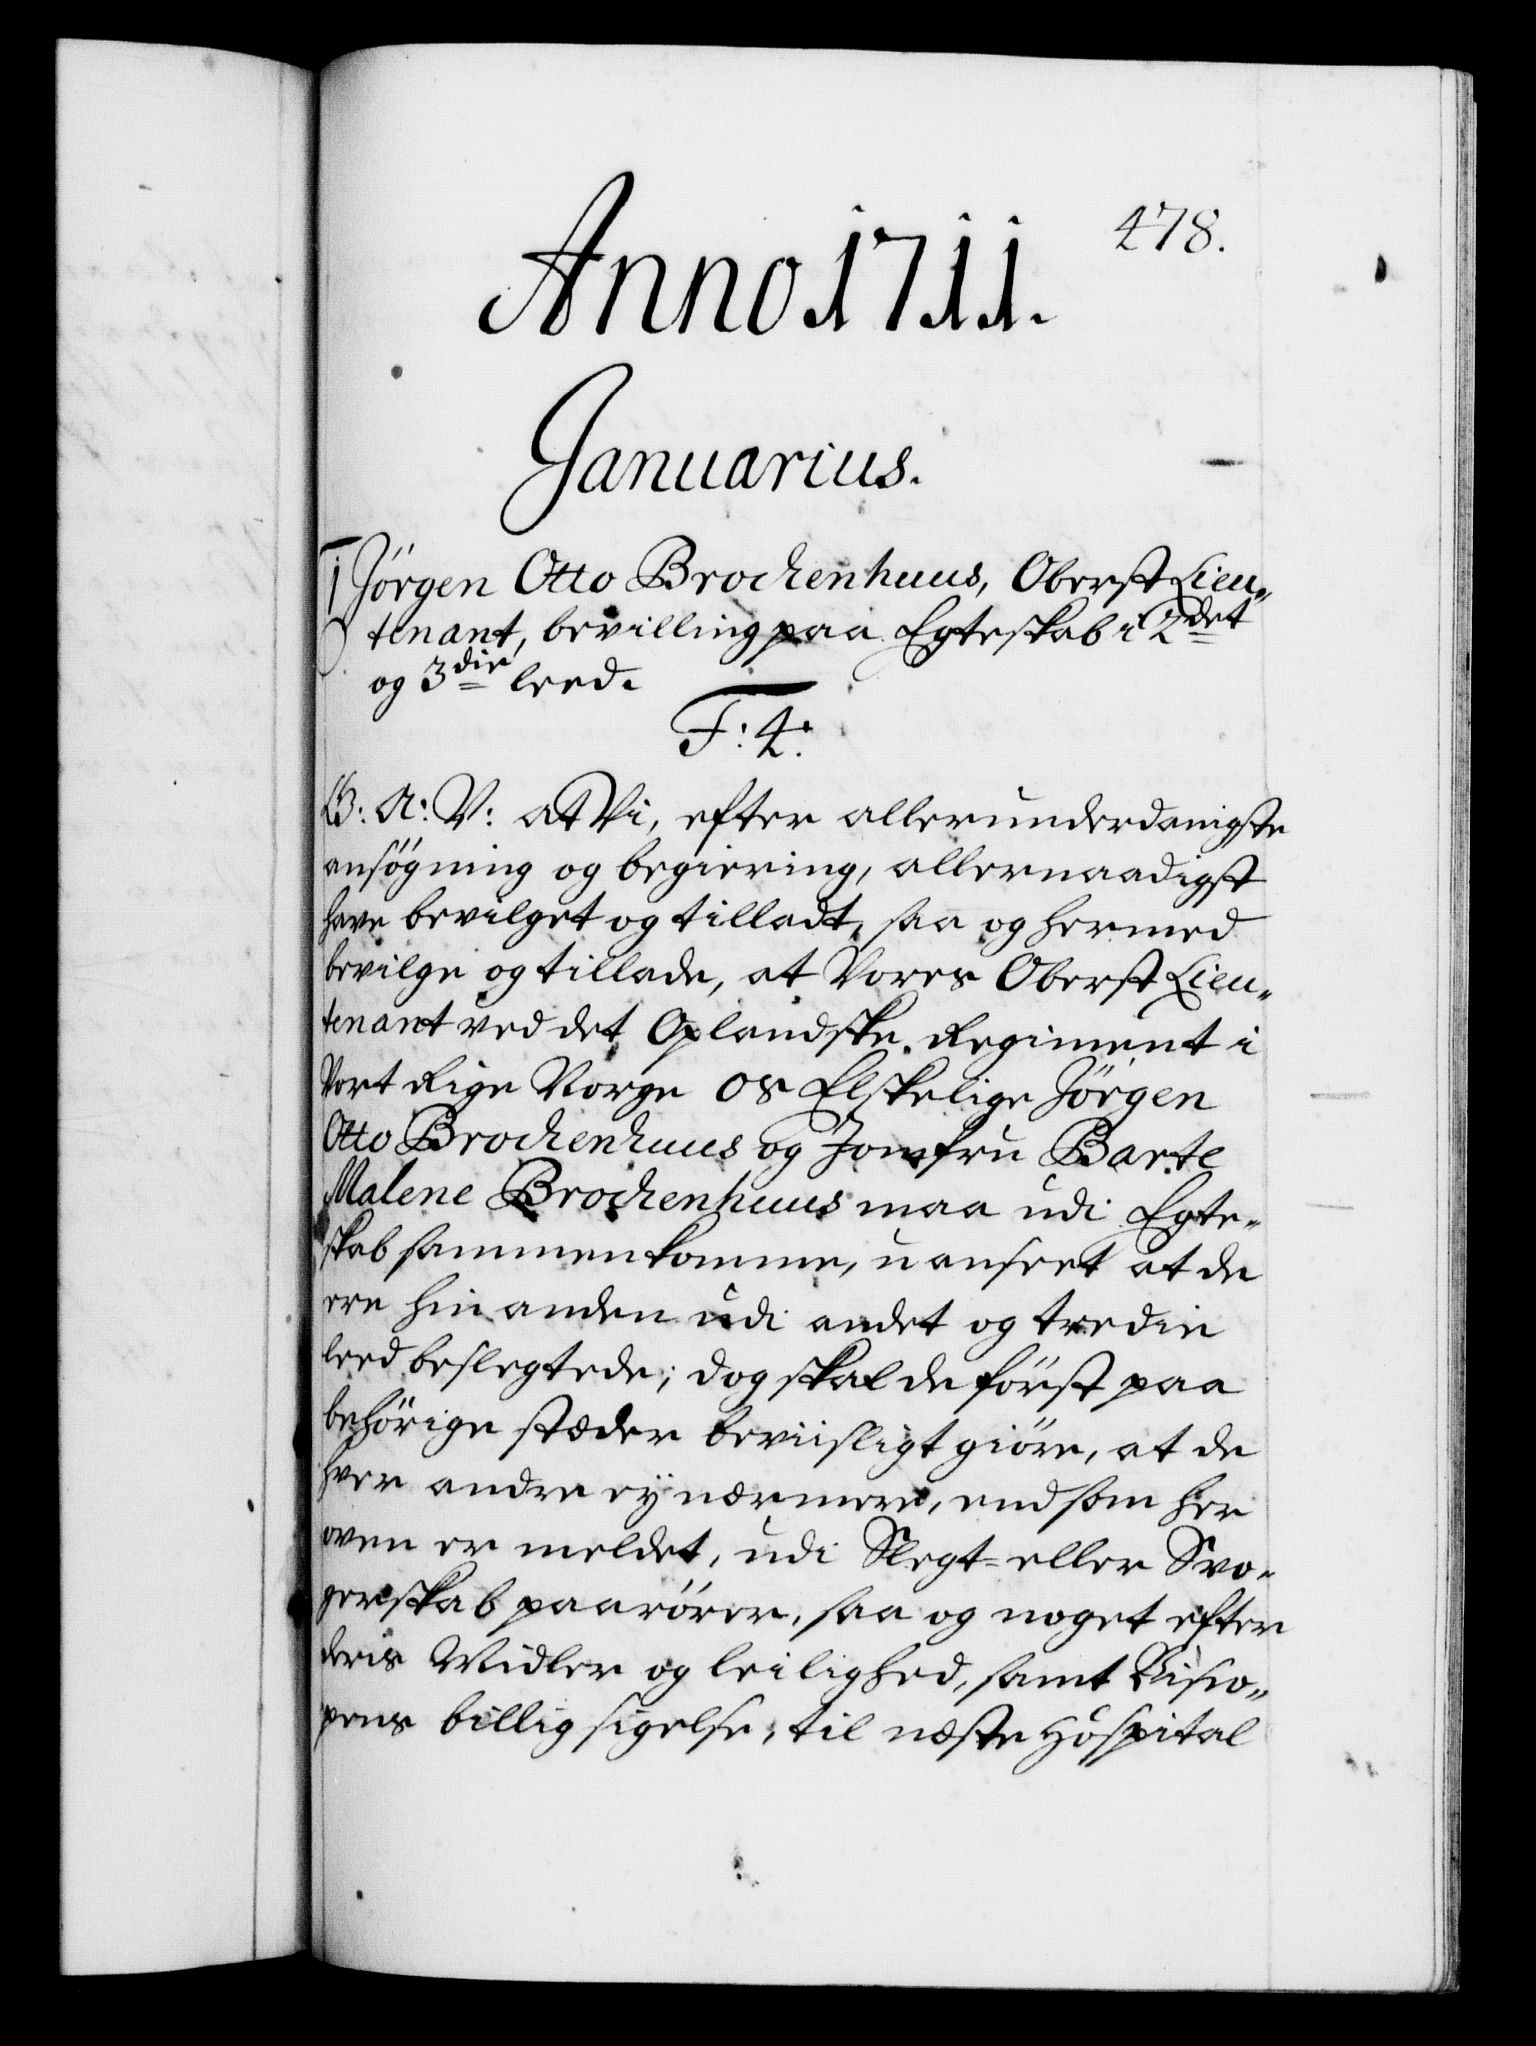 478.
Anno 1711.
Januarius.
1 Jörgen Otto Brochenhuus, Oberst Lieu„
tenant, bevilling paa Egteskab i 2det
og 3die leed.
F: 4.
G: A: V: at Vi, efter allerunderdanigste
ansögning og begiering, allernaadigst
have bevilget og tilladt, saa og hermed
bevilge og tillade, at Vores Oberst Lieu„
tenant ved det Oplandske Regiment i
Vort Rige Norge os Elskelige Jörgen
Otto Brochenhuus og Jomfru Barte
Malene Brochenhuus maa udi Egte„
skab sammenkomme, uanseet at de
ere hinanden udi andet og tredie
leed beslegtede; dog skal de först paa
behörige stæder beviisligt giöre, at de
hver andre ey nærmere, end som her
oven er meldet, udi Slegt- eller Svo„
gerskab paarörer, saa og noget efter
deris Midler og leilighed, samt Bisco„
pens billig sigelse, til næste Hospital